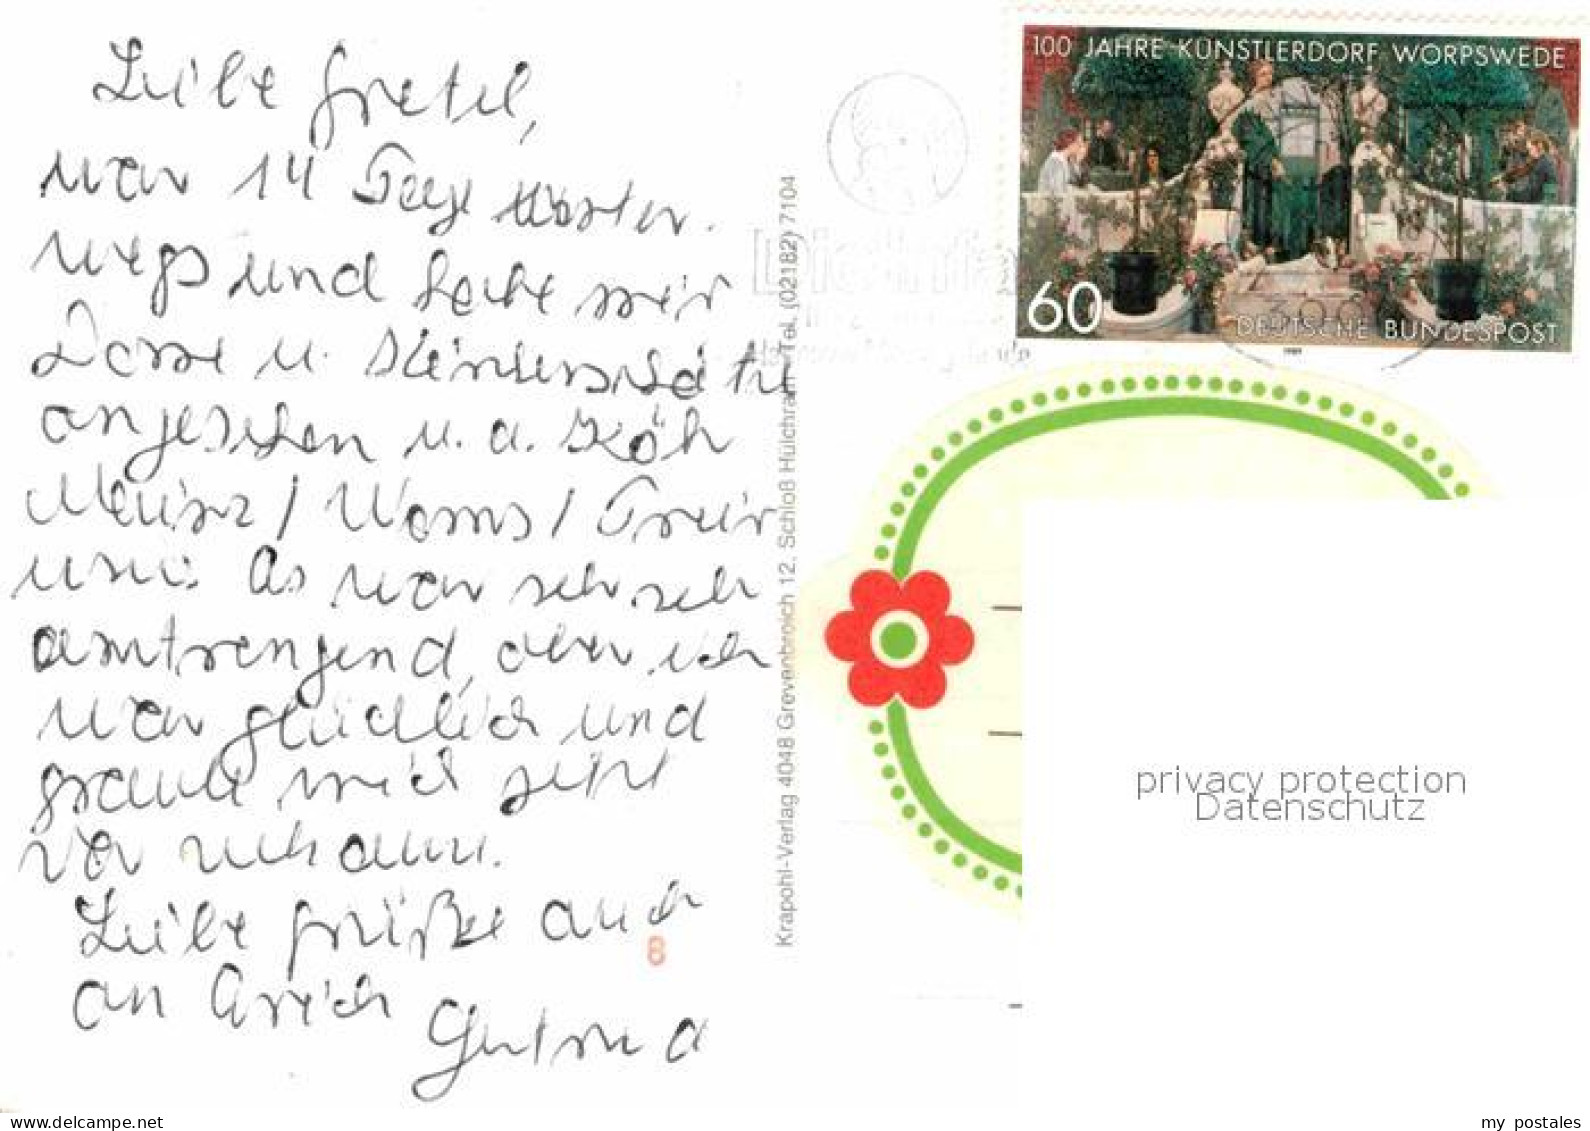 Liebe Gretel,
war 14 Tage unter-
wegs und habe mir
Dome u. Kleinkunststätte
angesehen u. a. Köln
Mainz / Worms / Trier
usw. Es war sehr sehr
anstrengend, aber ich
war glücklich und
mich jetzt
Liebe Grüße auch
an Erich
Gertrud
8
Krapohl-Verlag 4048 Grevenbroich 12, Schloß Hülchrath Tel. (02182) 7104
100 JAHRE KÜNSTLERDORF WORPSWEDE
60
DEUTSCHE BUNDESPOST
1989
privacy protection
Datenschutz
my postales